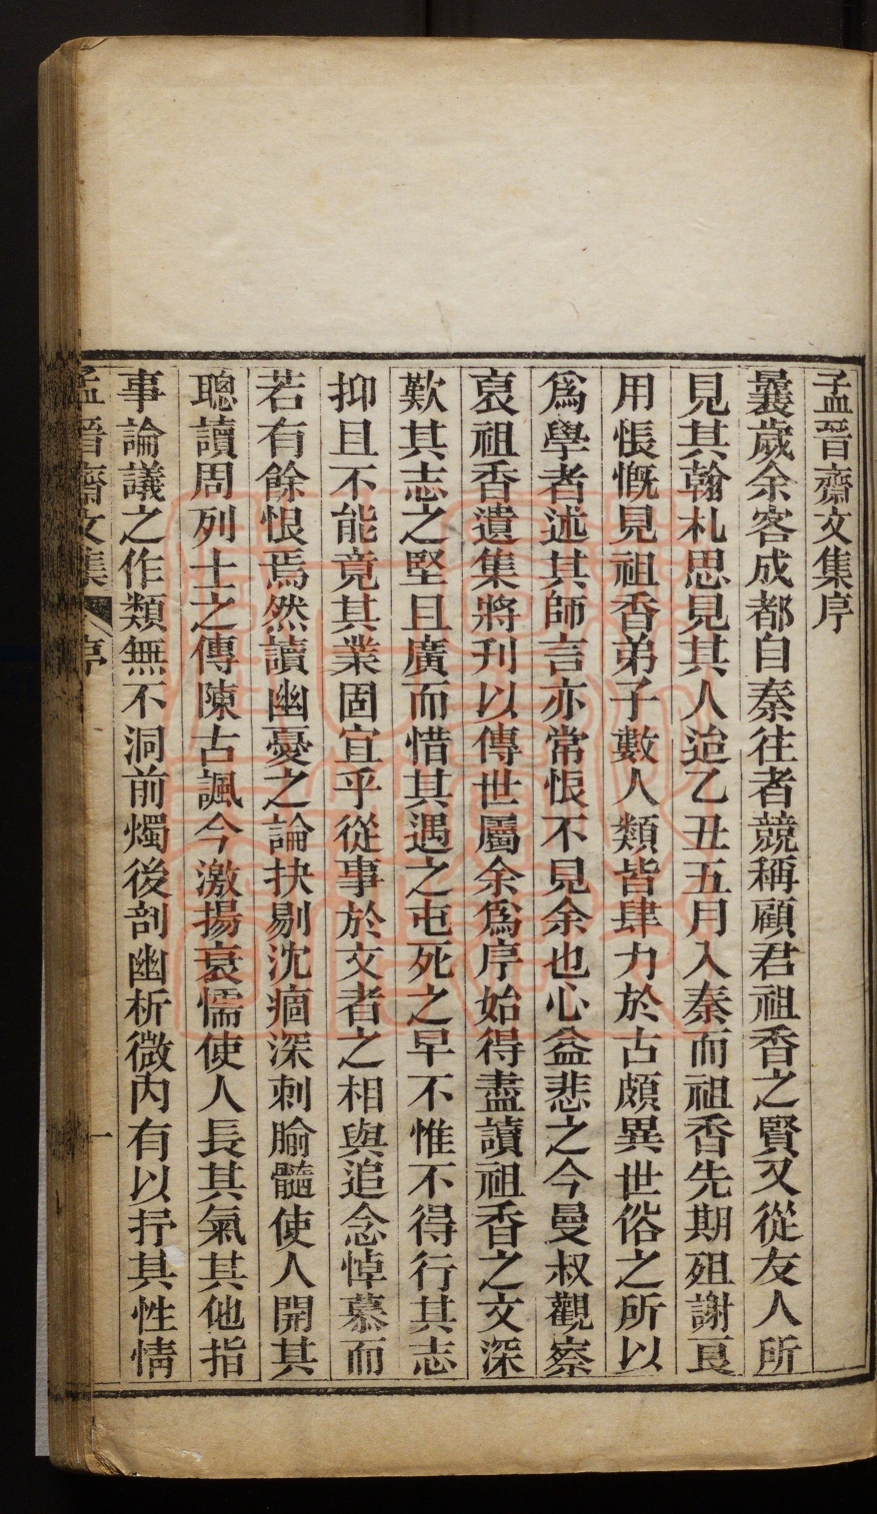 孟晉齋文集序
曩歲余客成都自秦往者競稱顧君祖香之賢又從友人所
見其翰札思見其人迨乙丑五月入秦而祖香先期殂謝良
用悵慨見祖香弟子數人類皆肆力於古頗異世俗之所以
爲學者述其師言亦常悵不見余也心益悲之今曼叔觀察
裒祖香遺集將刊以傳世屬余爲序始得盡讀祖香之文深
歎其志之堅且廣而惜其遇之屯死之早不惟不得行其志
抑且不能竟其業固宜乎從事於文者之相與追念悼慕而
若有餘恨焉然讀幽憂之論抉剔沈痼深刺腧髓使人開其
聰讀周列士之傳陳古諷今激揚衰懦使人長其氣其他指
事論議之作類無不洞前燭後剖幽析微内有以抒其性情
孟晉齋文集 序 一